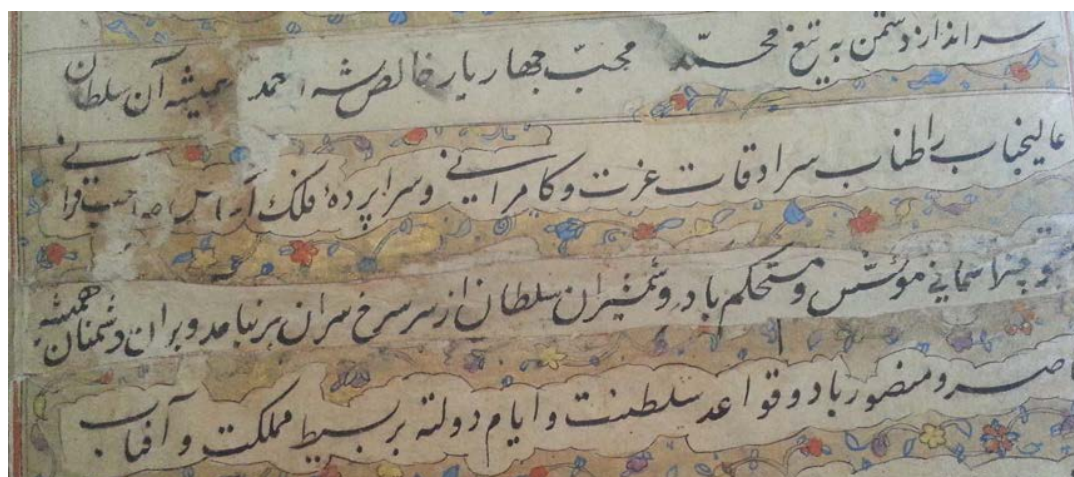 سر انداز دشمن به تیغ محمّد محبّ چهار یار خالص شه احمد همیشه آن سلطان
عالیجناب را طناب سرادقات عزت و کامرانے و سراپردهٔ فلک
آسمانے مؤسّس و مستحکم باد و شمشیر آن سلطان از سر سرخ سران بر نیاید و بر آن دشمنان همیشه
و منصور باد و قواعد سلطنت و ایام دولته بر بسیط مملکت و آفتاب